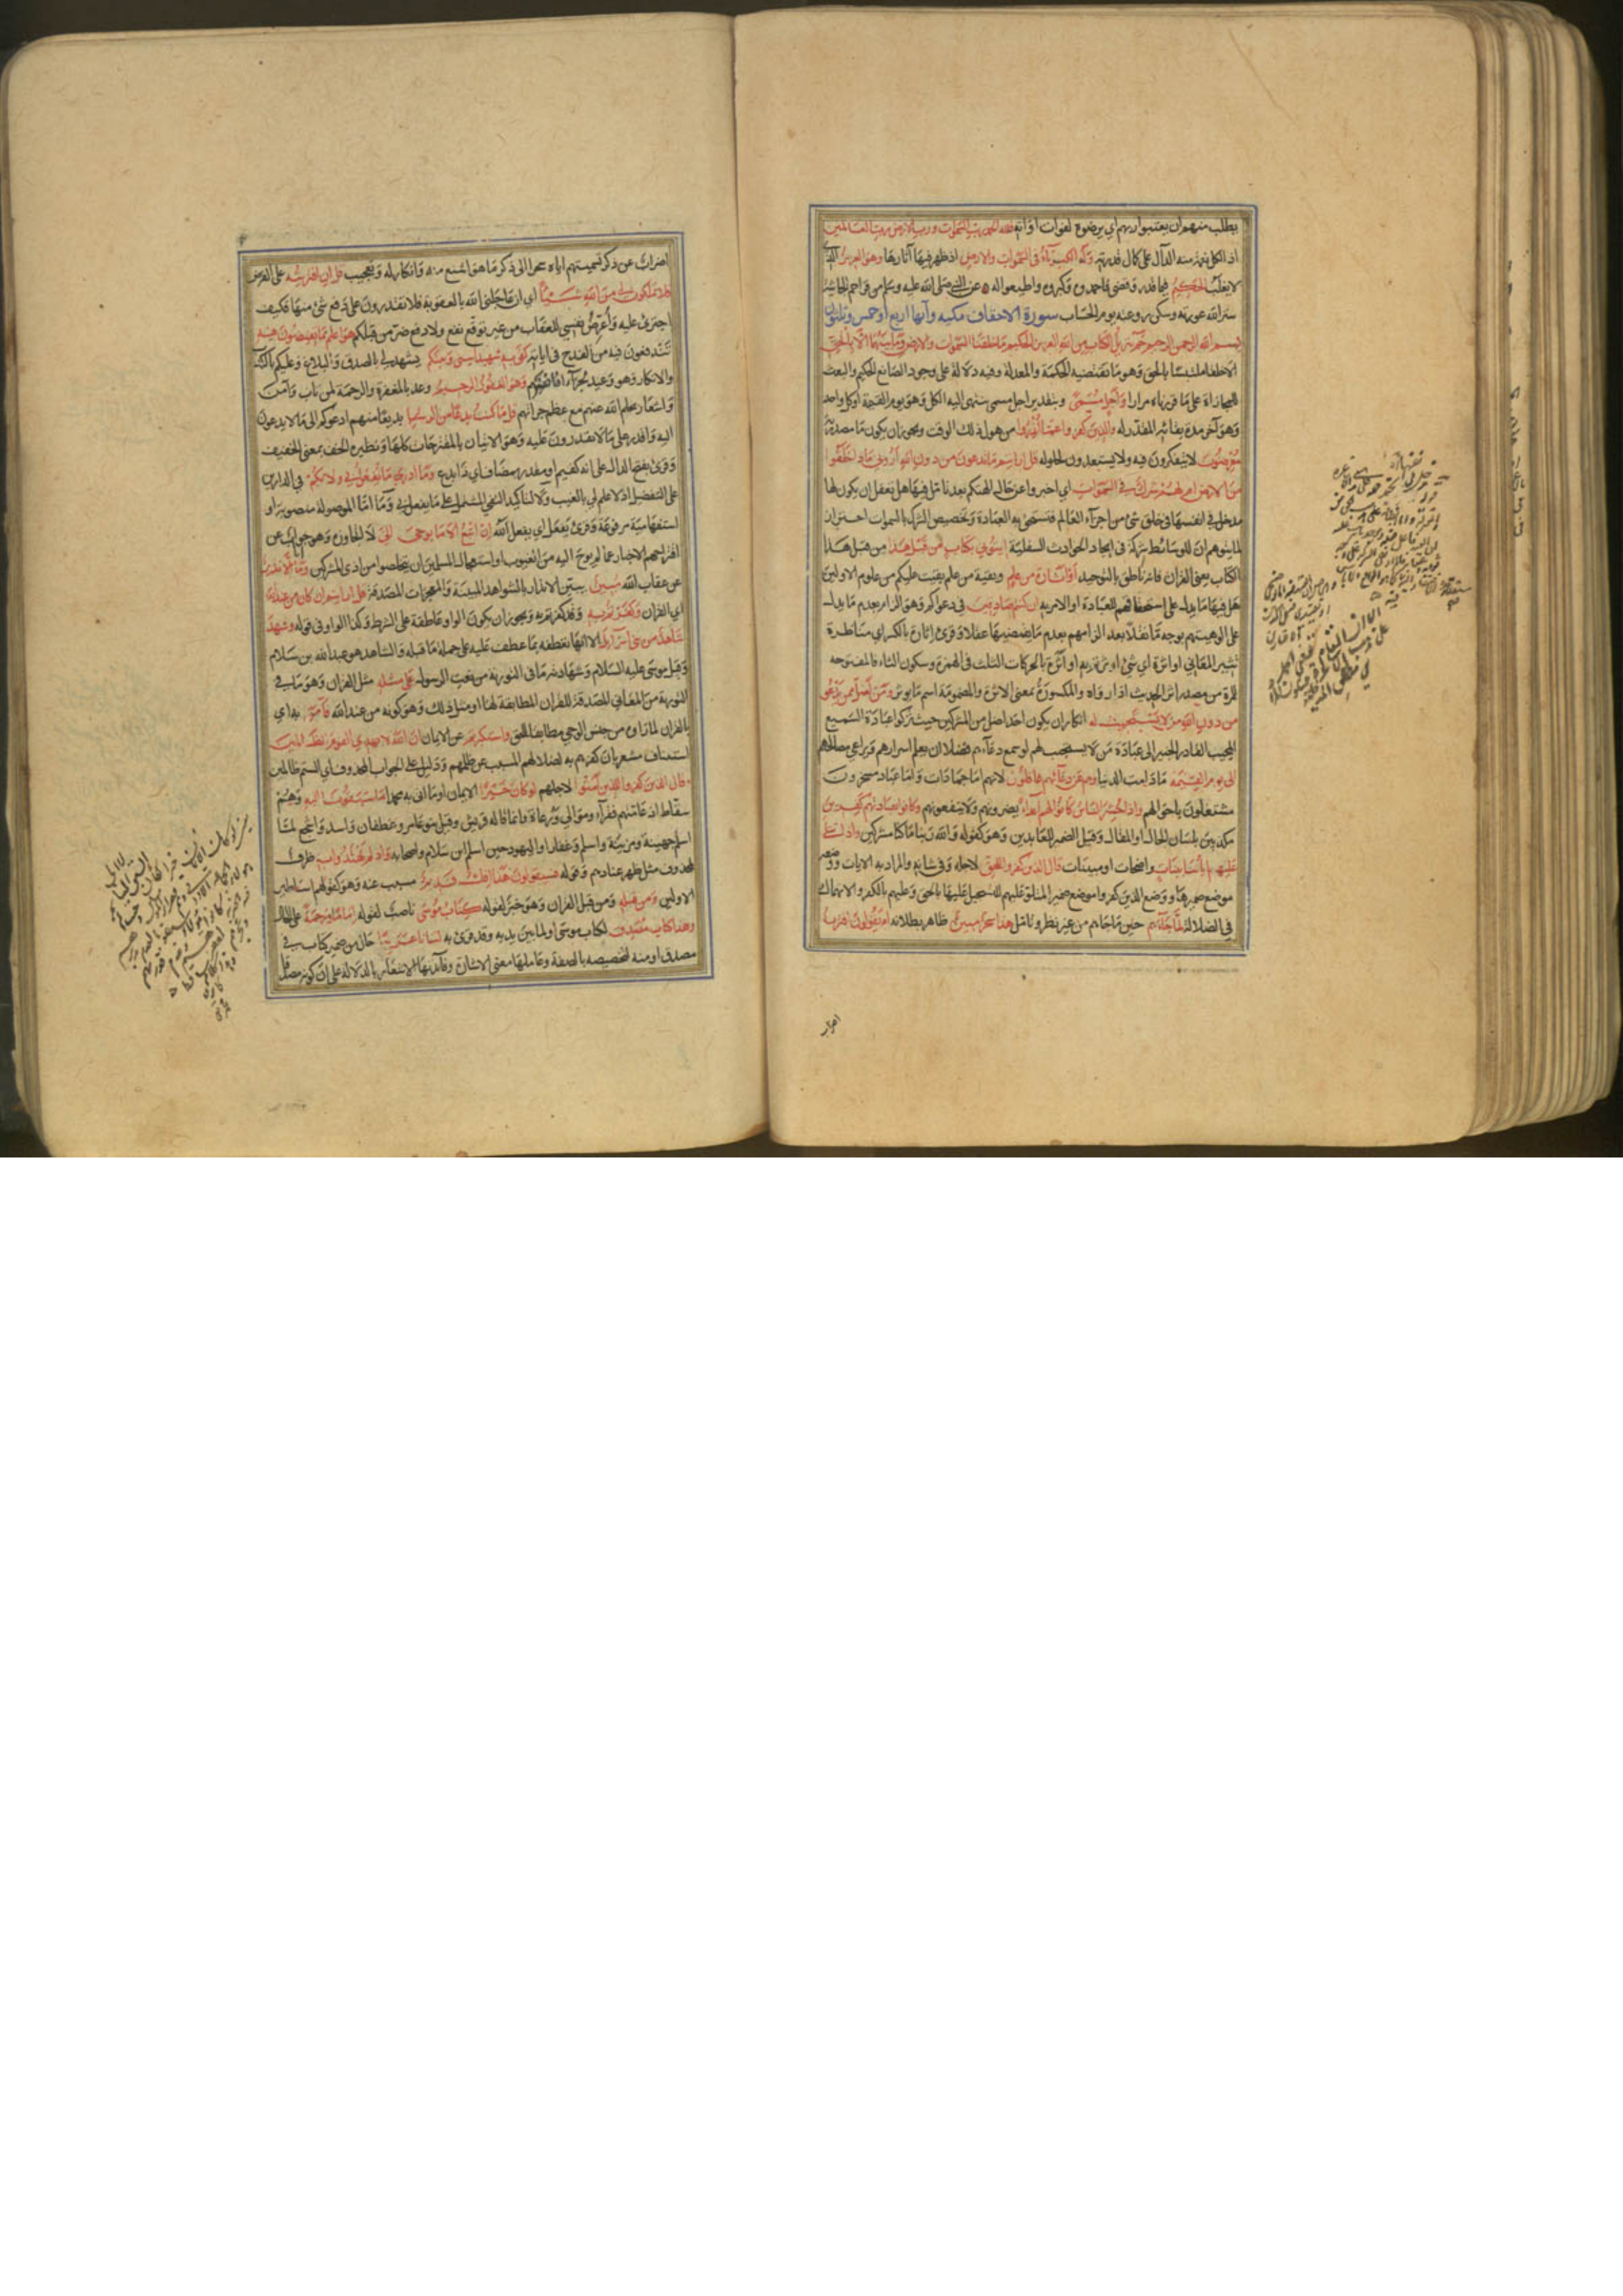 يطلب منهم ان يعتبوا ربهم اي يرضوه لفوات اوانه فلله الحمد رب السموات ورب الارض رب العالمين
اذ الكل نعمة منه الدال على كمال قدرته وله الكبرياء في السموات والارض اذ ظهر فيها آثارها وهو العزيز الذي
لا يغلب الحكيم فيما قدر وقضى فاحمدوه وكبروه واطيعوا له عن النبي صلى الله عليه وسلم من قرا حم الجاثية
ستر الله عورته وسكن روعته يوم الحساب سورة الاحقاف مكيه وآيها اربع او خمس وثلثون
بسم الله الرحمن الرحيم حم تنزيل الكتاب من الله العزيز الحكيم ما خلقنا السموات والارض وما بينهما الا بالحق
الا خلقا ملتبسا بالحق وهو ما تقتضيه الحكمة والمعدلة وفيه دلالة على وجود الصانع الحكيم والبعث
للمجازاة على ما قررناه مرارا واجل مسمى وبتقدير اجل مسمى ينتهي اليه الكل وهو يوم القيمة او كل واحد
وهو آخر مدة بقائه المقدر له والذين كفروا عما انذروا من هول ذلك الوقت ويجوز ان يكون ما مصدرية
معرضون لا يتفكرون فيه ولا يستعدون لحلوله قل ارايتم ما تدعون من دون الله اروني ماذا خلقوا
من الارض ام لهم شرك في السموات اي اخبروا عن حال الهتكم بعد تامل فيها هل يعقل ان يكون لها
مدخل في انفسها في خلق شئ من اجزاء العالم فتستحق به العبادة وتخصيص الشرك بالسموات احتراز
لما يتوهم ان للوسائط شركة في ايجاد الحوادث السفلية ايتوني بكتاب من قبل هذا من قبل هذا
الكتاب يعني القران فانه ناطق بالتوحيد او اثارة من علم وبقية من علم بقيت عليكم من علوم الاولين
هل فيها ما يدل على استحقاقهم للعبادة او الامر به ان كنتم صادقين في دعواكم وهو الزام بعدم ما يدل
على الوهيتهم بوجه ما نقلا بعد الزامهم بعدم ما يقتضيها عقلا وقرئ اثارة بالكسر اي مناظرة
تثير المعاني او اثرة اي شئ اوثرتم به او اثرة بالحركات الثلث في الهمزة وسكون الثاء فالمفتوحه
للمرة من مصدر اثر الحديث اذا رواه والمكسورة بمعنى الاثرة والمضمومة اسم ما يوثر ومن اضل ممن يدعو
من دون الله من لا يستجيب له انكار ان يكون احد اضل من المشركين حيث تركوا عبادة السميع
المجيب القادر الخبير الى عبادة من لا يستجيب لهم لو سمع دعاءهم فضلا ان يعلم اسرارهم ويراعي مصالحهم
الى يوم القيمة ما دامت الدنيا وهم عن دعائهم غافلون لانهم اما جمادات واما عباد مسخرون
مشتغلون باحوالهم واذا حشر الناس كانوا لهم اعداء يضرونهم ولا ينفعونهم وكانوا بعبادتهم كافرين
مكذبين بلسان الحال او المقال وقيل الضمير للعابدين وهو كقوله والله ربنا ما كنا مشركين واذا تتلى
عليهم اياتنا بينات واضحات او مبينات قال الذين كفروا للحق لاجله وفي شانه والمراد به الايات ووضعه
موضع ضميرها ووضع الذين كفروا موضع ضمير المتلو عليهم للتسجيل عليها بالحق وعليهم بالكفر والانهماك
في الضلالة لما جاءهم حين ما جاءهم من غير نظر وتامل هذا سحر مبين ظاهر بطلانه ام يقولون افتريه
اضراب
اضراب عن ذكر تسميتهم اياه سحرا الى ذكر ما هو اشنع منه وانكار له وتعجيب قل ان افتريته على الفرض
فلا تملكون لي من الله شيئا اي ان عاجلني الله بالعقوبة فلا تقدرون على دفع شئ منها فكيف
اجترئ عليه واعرض نفسي للعقاب من غير توقع نفع ولا دفع ضر من قبلكم هو اعلم بما تفيضون فيه
تندفعون فيه من القدح في اياته كفى به شهيدا بيني وبينكم يشهد لي بالصدق والبلاغ وعليكم بالكذب
والانكار وهو وعيد بجزاء افاضتهم وهو الغفور الرحيم وعد بالمغفرة والرحمة لمن تاب وآمن
واشعار بحلم الله عنهم مع عظم جراتهم قل ما كنت بدعا من الرسل بديعا منهم ادعوكم الى ما لا يدعون
اليه واقدر على ما لا يقدرون عليه وهو الاتيان بالمقترحات كلها ونظيره الخف بمعنى الخفيف
وقرئ بفتح الدال على انه كقيم او مقدر بمضاف اي ذا بدع وما ادري ما يفعل بي ولا بكم في الدارين
على التفصيل اذ لا علم لي بالغيب ولا لتاكيد النفي المشتمل على ما يفعل بي وما اما الموصولة منصوبة او
استفهامية مرفوعة وقرئ يفعل اي يفعل الله ان اتبع الا ما يوحى الي لا اتجاوزه وهو جواب عن
اقتراحهم الاخبار عما لم يوح اليه من الغيوب او استعجال المسلمين ان يتخلصوا من اذى المشركين وما انا الا نذير
عن عقاب الله مبين يبين الانذار بالشواهد المبينة والمعجزات المصدقة قل ارايتم ان كان من عند الله
اي القران وكفرتم به وقد كفرتم به ويجوز ان يكون الواو عاطفة على الشرط وكذا الواو في قوله وشهد
شاهد من بني اسرائيل الا انها تعطفه بما عطف عليه على جملة ما قبله والشاهد هو عبد الله بن سلام
وقيل موسى عليه السلام وشهادته ما في التورية من نعت الرسول على مثله مثل القران وهو ما في
التورية من المعاني المصدقة للقران المطابقة لها او مثل ذلك وهو كونه من عند الله فآمن به اي
بالقران لما راه من جنس الوحي مطابقا للحق واستكبرتم عن الايمان ان الله لا يهدي القوم الظالمين
استيناف مشعر بان كفرهم به لضلالهم المسبب عن ظلمهم ودليل على الجواب المحذوف اي الستم ظالمين
وقال الذين كفروا للذين آمنوا لاجلهم لو كان خيرا الايمان او ما اتى به محمد ما سبقونا اليه وهم
سقاط اذ عامتهم فقراء وموالي ورعاة وانما قاله قريش وقيل بنو عامر وغطفان واسد واشجع لما
اسلم جهينة ومزينة واسلم وغفار او اليهود حين اسلم ابن سلام واصحابه واذ لم يهتدوا به ظرف
لمحذوف مثل ظهر عنادهم وقوله فسيقولون هذا افك قديم مسبب عنه وهو كقولهم اساطير
الاولين ومن قبله ومن قبل القران وهو خبر لقوله كتاب موسى ناصب لقوله اماما ورحمة على الحال
وهذا كتاب مصدق لكتاب موسى او لما بين يديه وقد قرئ به لسانا عربيا حال من ضمير كتاب في
مصدق او منه لتخصيصه بالصفة وعاملها معنى الاشارة وفائدتها الاشعار بالدلالة على ان كونه مصدقا